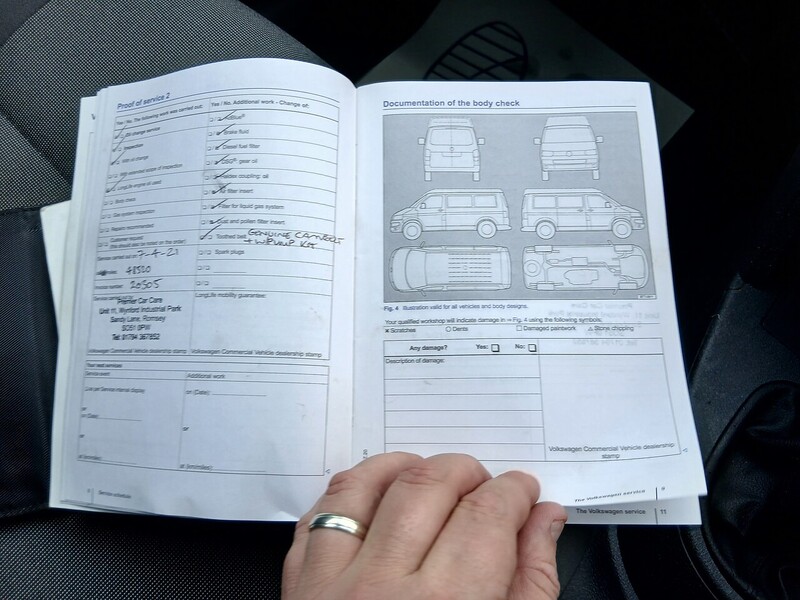 Proof of service 2
Yes / No. The following work was carried out:
Oil change service
Inspection
With oil change
With extended scope of inspection
LongLife engine oil used
Body check
Gas system inspection
Repairs recommended
Customer informed
(this should also be noted on the order)
Service carried out on 7-4-21
48520
Invoice number 20505
Premier Car Care
Unit 11, Wynford Industrial Park
Sandy Lane, Romsey
SO51 0PW
Tel: 01794 367852
Volkswagen Commercial Vehicle dealership stamp
Yes / No. Additional work - Change of:
AdBlue®
Brake fluid
Diesel fuel filter
DSG® gear oil
Haldex coupling oil
Air filter insert
Filter for liquid gas system
Dust and pollen filter insert
Toothed belt GENUINE CAMBELT
+ W/PUMP KIT
Spark plugs
LongLife mobility guarantee:
Volkswagen Commercial Vehicle dealership stamp
Your next services
Service event:
List per Service interval display
or
on (Date)
or
at (km/miles)
Additional work
on (Date)
or
at (km/miles)
Service schedule
Documentation of the body check
Fig. 4 Illustration valid for all vehicles and body designs.
Your qualified workshop will indicate damage in ⇒ Fig. 4 using the following symbols.
× Scratches ○ Dents □ Damaged paintwork △ Stone chipping
Any damage? Yes: No:
Description of damage:
Volkswagen Commercial Vehicle dealership
stamp
The Volkswagen service 9
The Volkswagen service 11